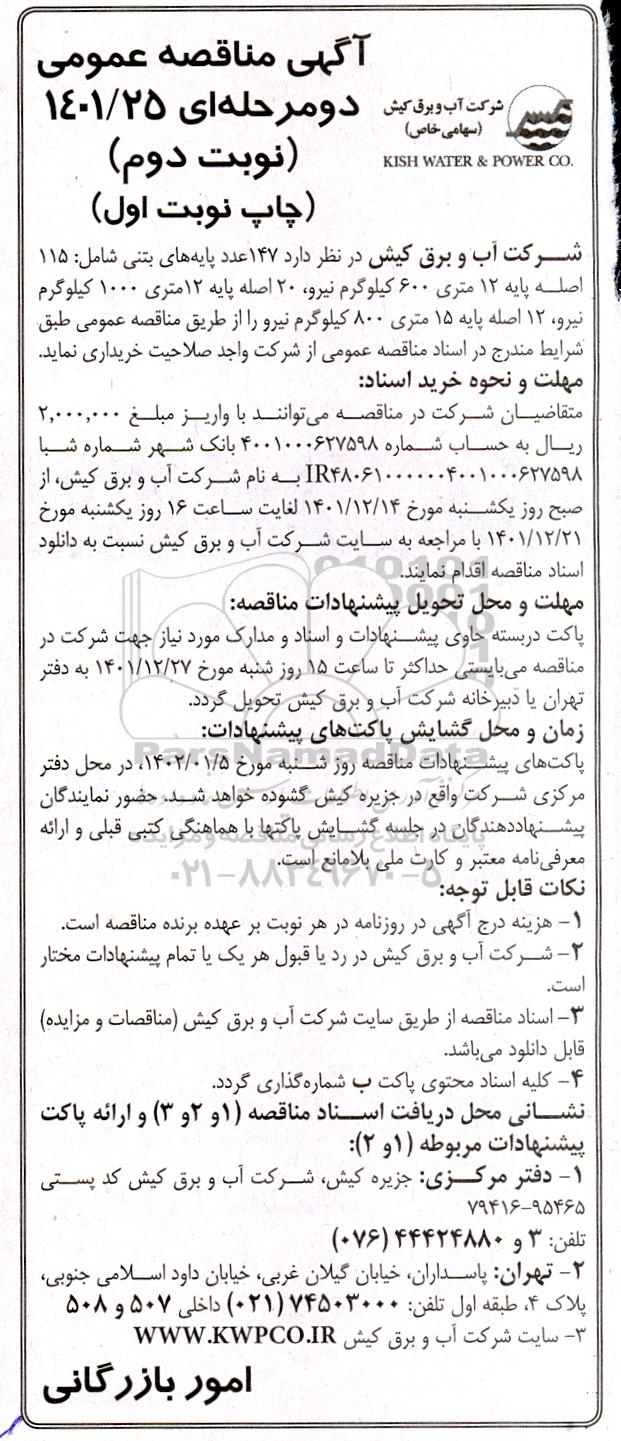 آگهی مناقصه عمومی
دومرحله‌ای ۱٤۰۱/۲۵
(نوبت دوم)
(چاپ نوبت اول)
شرکت آب و برق کیش
(سهامی خاص)
KISH WATER & POWER CO.
شرکت آب و برق کیش در نظر دارد ۱۴۷عدد پایه‌های بتنی شامل: ۱۱۵
اصله پایه ۱۲ متری ۶۰۰ کیلوگرم نیرو، ۲۰ اصله پایه ۱۲متری ۱۰۰۰ کیلوگرم
نیرو، ۱۲ اصله پایه ۱۵ متری ۸۰۰ کیلوگرم نیرو را از طریق مناقصه عمومی طبق
شرایط مندرج در اسناد مناقصه عمومی از شرکت واجد صلاحیت خریداری نماید.
مهلت و نحوه خرید اسناد:
متقاضیان شرکت در مناقصه می‌توانند با واریز مبلغ ۲,۰۰۰,۰۰۰
ریال به حساب شماره ۴۰۰۱۰۰۰۶۲۷۵۹۸ بانک شهر شماره شبا
IR۴۸۰۶۱۰۰۰۰۰۰۴۰۰۱۰۰۰۶۲۷۵۹۸ به نام شرکت آب و برق کیش، از
صبح روز یکشنبه مورخ ۱۴۰۱/۱۲/۱۴ لغایت ساعت ۱۶ روز یکشنبه مورخ
۱۴۰۱/۱۲/۲۱ با مراجعه به سایت شرکت آب و برق کیش نسبت به دانلود
اسناد مناقصه اقدام نمایند.
مهلت و محل تحویل پیشنهادات مناقصه:
پاکت دربسته حاوی پیشنهادات و اسناد و مدارک مورد نیاز جهت شرکت در
مناقصه می‌بایستی حداکثر تا ساعت ۱۵ روز شنبه مورخ ۱۴۰۱/۱۲/۲۷ به دفتر
تهران یا دبیرخانه شرکت آب و برق کیش تحویل گردد.
زمان و محل گشایش پاکت‌های پیشنهادات:
ParsNamadData
پاکت‌های پیشنهادات مناقصه روز شنبه مورخ ۱۴۰۲/۰۱/۵، در محل دفتر
مرکزی شرکت واقع در جزیره کیش گشوده خواهد شد. حضور نمایندگان
پیشنهاددهندگان در جلسه گشایش پاکتها با هماهنگی کتبی قبلی و ارائه
پایگاه اطلاع رسانی مناقصه و مزایده
معرفی‌نامه معتبر و کارت ملی بلامانع است.
۰۲۱-۸۸۳۴۹۶۷۰-۵
نکات قابل توجه:
۱- هزینه درج آگهی در روزنامه در هر نوبت بر عهده برنده مناقصه است.
۲- شرکت آب و برق کیش در رد یا قبول هر یک یا تمام پیشنهادات مختار
است.
۳- اسناد مناقصه از طریق سایت شرکت آب و برق کیش (مناقصات و مزایده)
قابل دانلود می‌باشد.
۴- کلیه اسناد محتوی پاکت ب شماره‌گذاری گردد.
نشانی محل دریافت اسناد مناقصه (۱و ۲و ۳) و ارائه پاکت
پیشنهادات مربوطه (۱و ۲):
۱- دفتر مرکزی: جزیره کیش، شرکت آب و برق کیش کد پستی
۷۹۴۱۶-۹۵۴۶۵
تلفن: ۳ و ۴۴۴۲۴۸۸۰ (۰۷۶)
۲- تهران: پاسداران، خیابان گیلان غربی، خیابان داود اسلامی جنوبی،
پلاک ۴، طبقه اول تلفن: ۷۴۵۰۳۰۰۰ (۰۲۱) داخلی ۵۰۷ و ۵۰۸
۳- سایت شرکت آب و برق کیش WWW.KWPCO.IR
امور بازرگانی